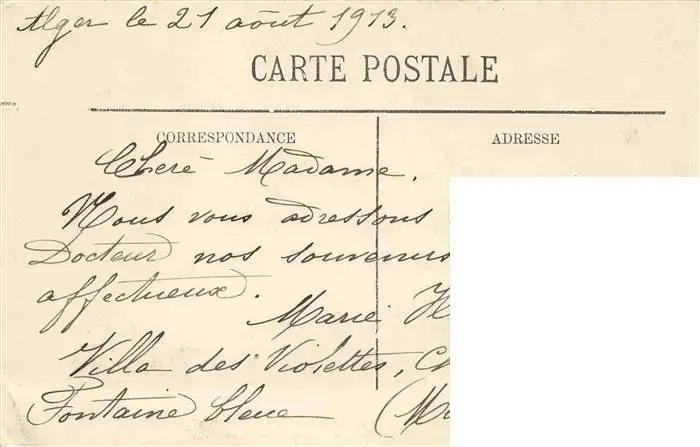 Alger le 21 août 1913.
CARTE POSTALE
CORRESPONDANCE
ADRESSE
Chere Madame.
Nous vous adressons
Docteur nos souvenirs
affectueux.
Marie
Villa des Violettes,
Fontaine bleue